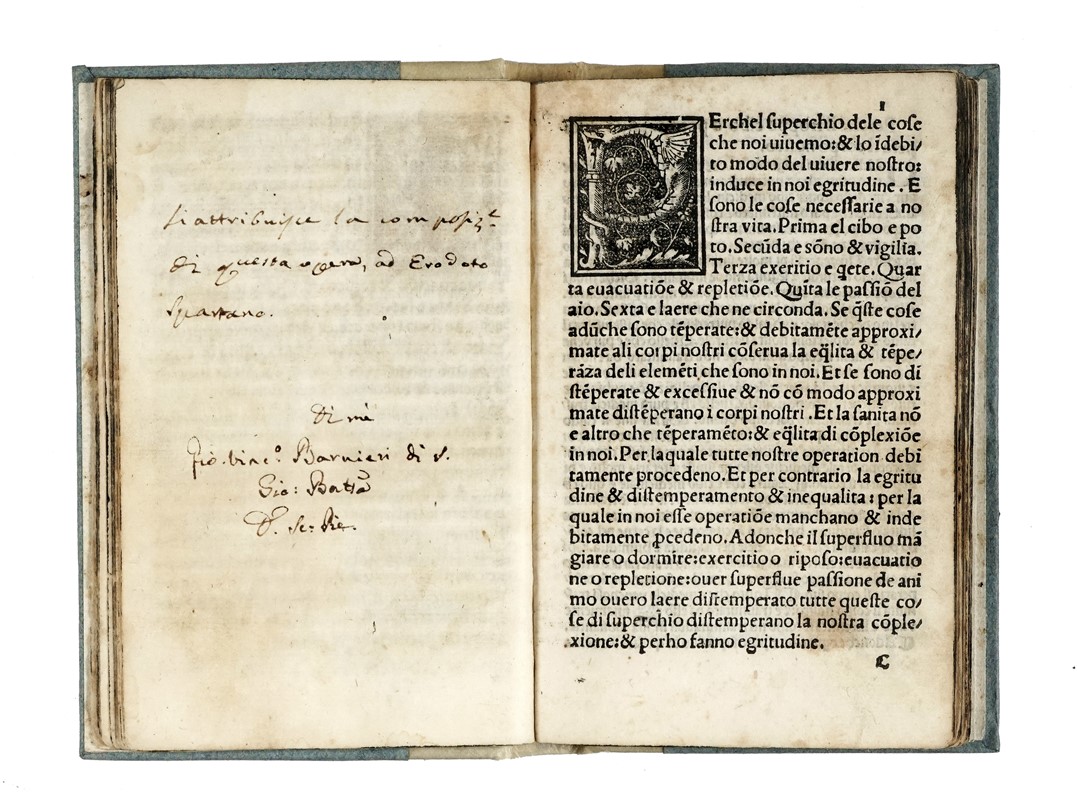 Si attribuisce la composiz.e
di questa opera, ad Erodoto
Spartano.
Di me
Gio. Vinc.o Barnieri di S.
Gio: Batta
1
PErchel superchio dele cose
che noi uiuemo: & lo ĩdebi/
to modo del uiuere nostro:
induce in noi egritudine . E
sono le cose necessarie a no
stra vita. Prima el cibo e po
to. Secũda e sõno & vigilia.
Terza exeritio e qete. Quar
ta euacuatiõe & repletiõe. Quĩta le passiõ del
aio. Sexta e laere che ne circonda. Se q̃ste cose
adũche sono tẽperate: & debitamẽte approxi/
mate ali corpi nostri cõserua la eq̃lita & tẽpe/
rãza deli elemẽti che sono in noi. Et se sono di
stẽperate & excessiue & nõ cõ modo approxi
mate distẽperano i corpi nostri . Et la sanita nõ
e altro che tẽperamẽto: & eq̃lita di cõplexiõe
in noi. Per la quale tutte nostre operation debi
tamente procedeno. Et per contrario la egritu
dine & distemperamento & inequalita : per la
quale in noi esse operatiõe manchano & inde
bitamente ꝓcedeno. Adonche il superfluo mã
giare o dormire: exercitio o riposo: euacuatio
ne o repletione: ouer superflue passione de ani
mo ouero laere distemperato tutte queste co/
se di superchio distemperano la nostra cõple/
xione: & perho fanno egritudine.
C